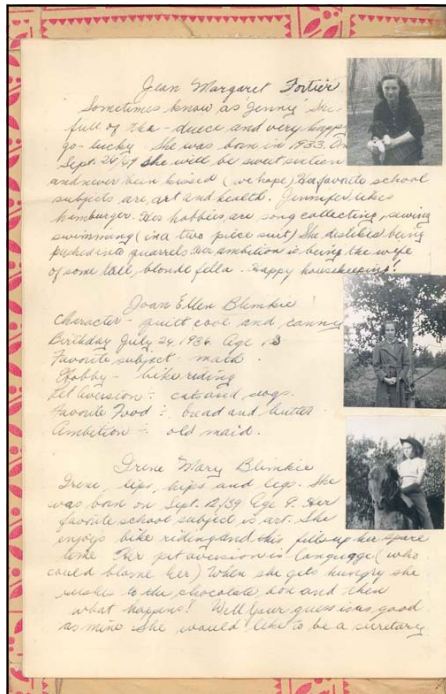 Jean Margaret Fortier
Sometimes know as Jenny She
full of the - duece and very happy
go - lucky She was born in 1933. On
Sept. 24/49 she will be sweet sixteen
and never been kissed (we hope) Her favorite school
subjects are, art and health. Jennifer likes
hamburger. Her hobbies are song collecting, sewing
swimming (in a two piece suit) She disliked being
pushed into quarrels. Her ambition is being the wife
of some tall, blonde fella. Happy housekeeping!
Joan Ellen Blimkie
Character - quiet cool and canny
Birthday July 24, 1936 Age 13
Favorite subject - math
Hobby - bike riding
Pet Aversion :- cats and dogs.
Favorite Food :- bread and butter
Ambition :- old maid.
Irene Mary Blimkie
Irene, lips, hips and legs. She
was born on Sept. 12/39 Age 9. Her
favorite school subject is art. She
enjoys bike riding and this fills up her spare
time Her pet aversion is language (who
could blame her) When she gets hungry she
rushes to the chocolate box and then
what happens! Well your guess is as good
as mine She would like to be a secretary